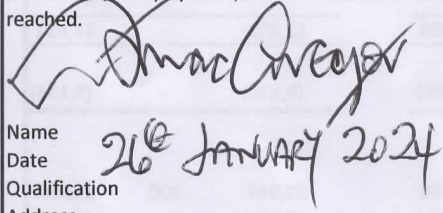 reached.
Name
Date 26th JANUARY 2024
Qualification
Address